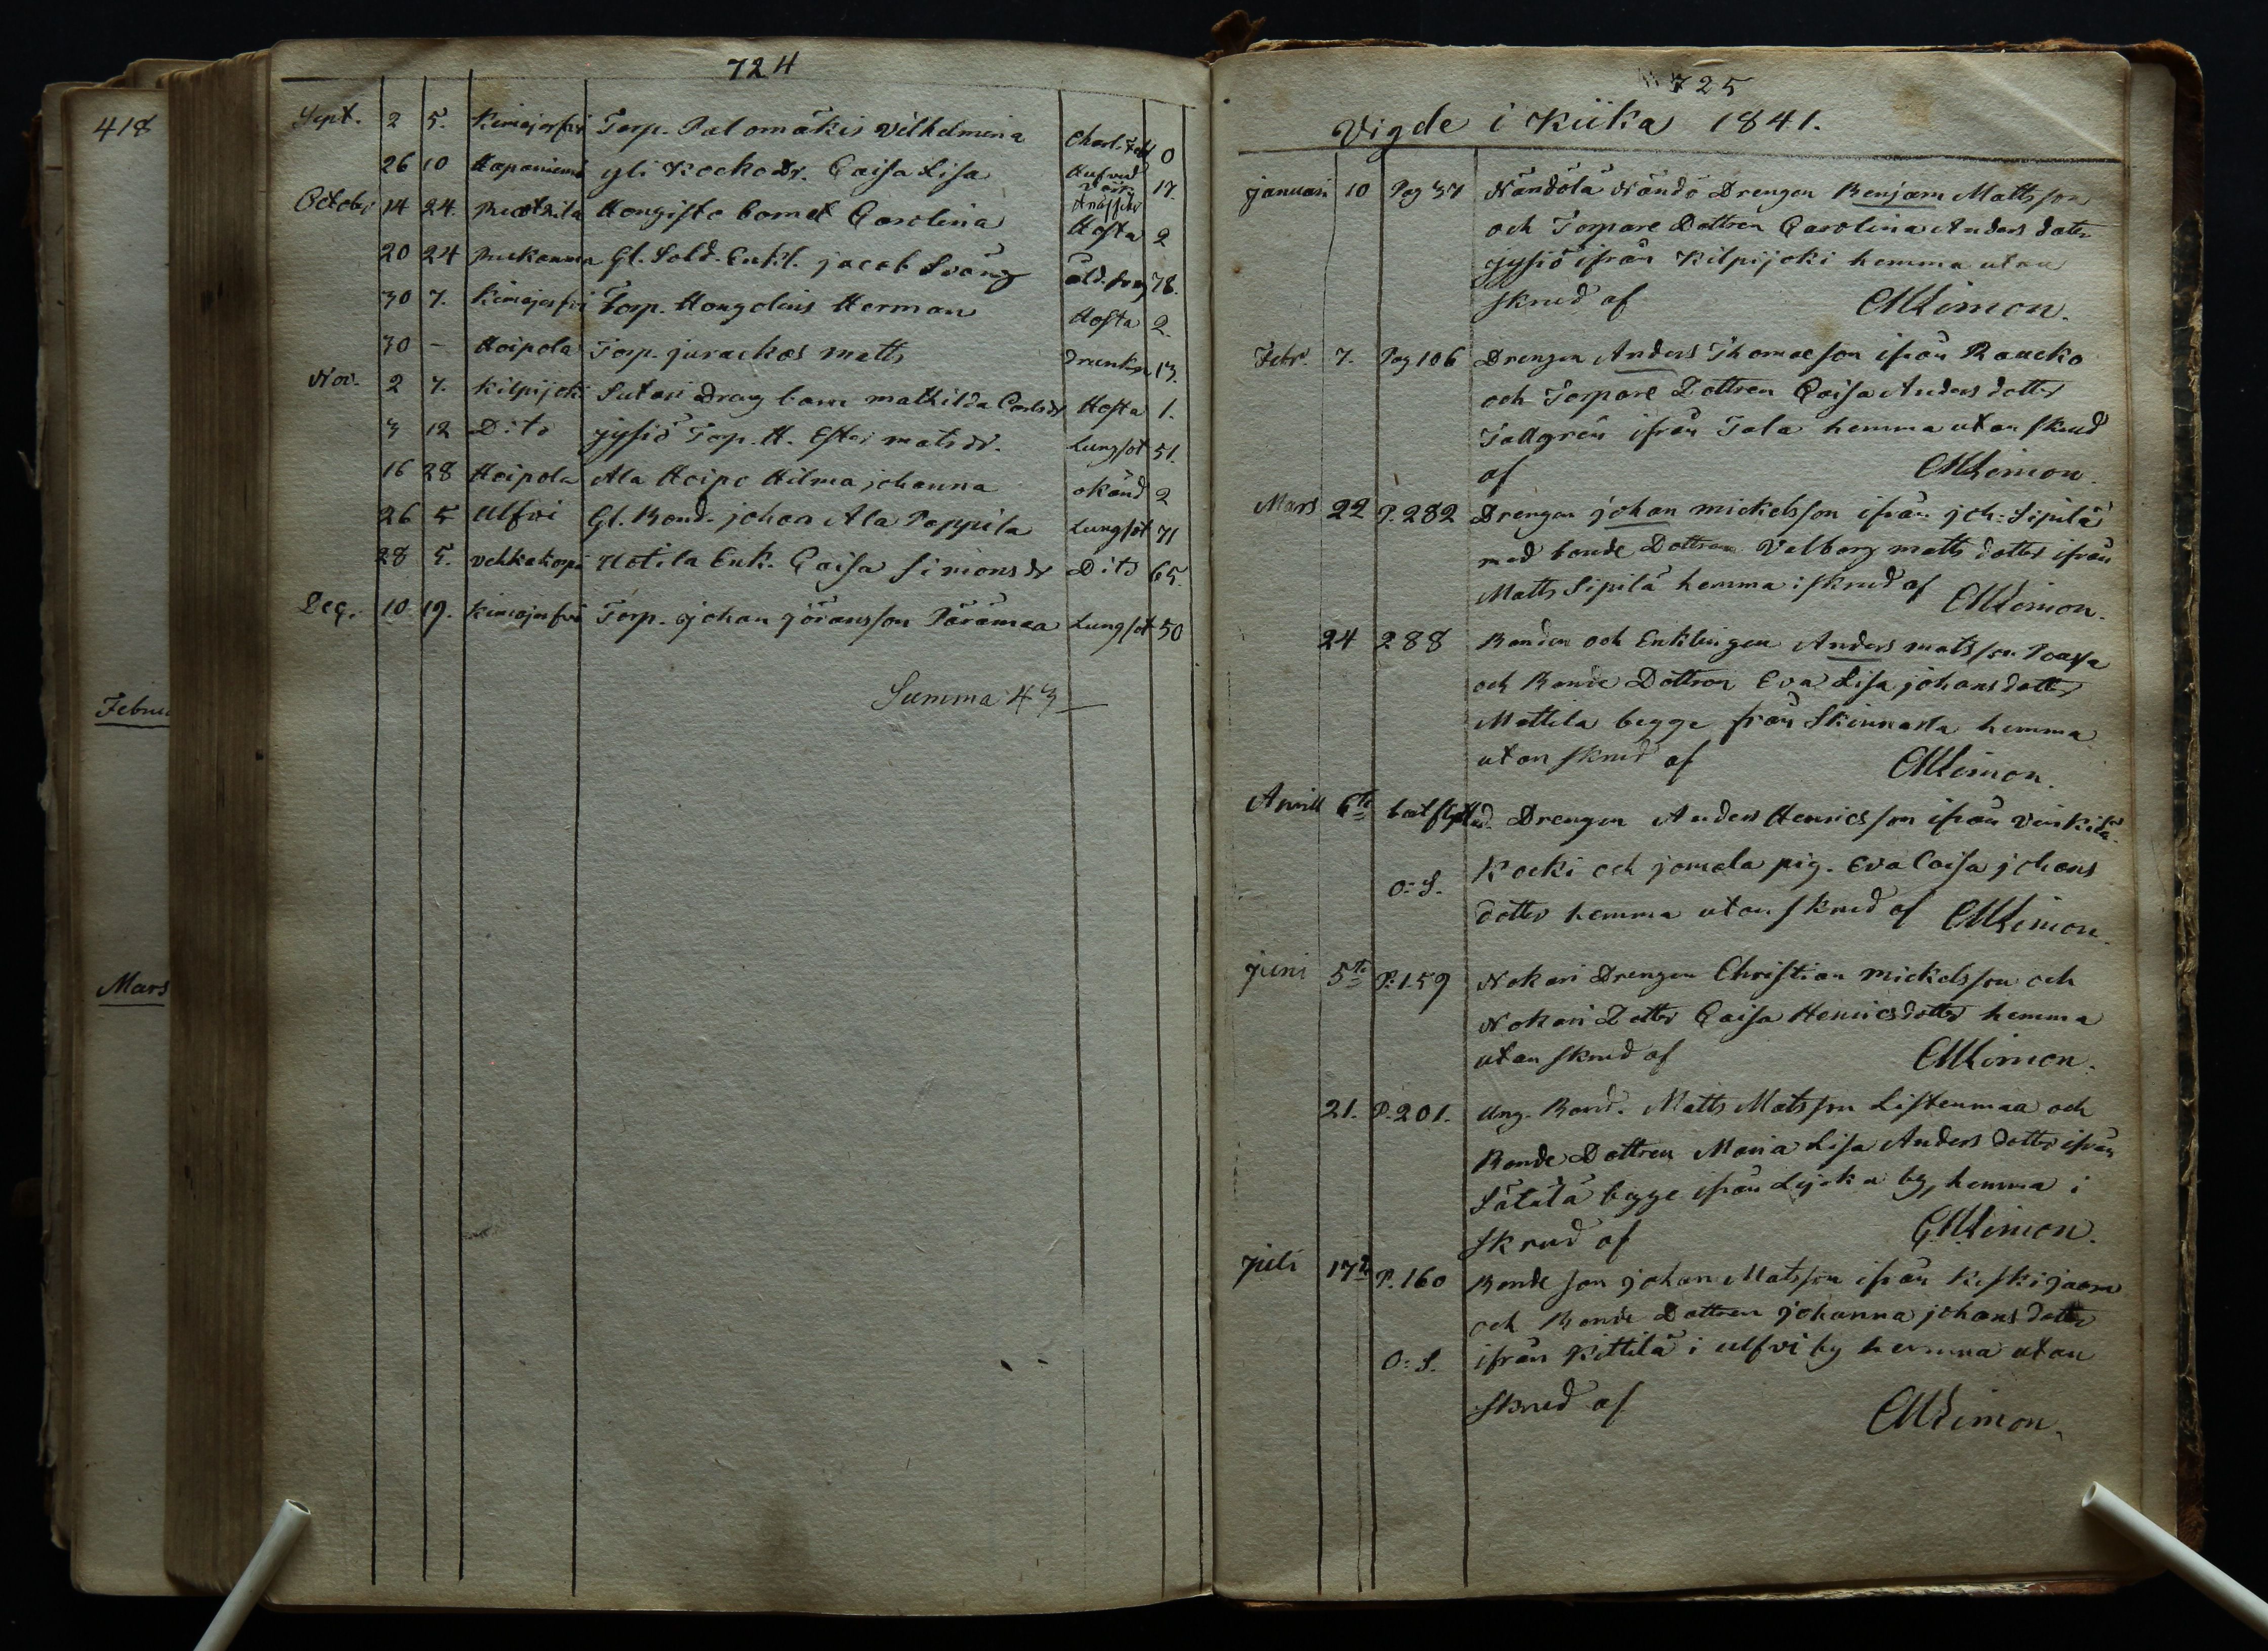 418
Februa
Mars
724
Sept. 2 5. Kimajerfvi Torp. Palomäkis Vilhelmina Charl. Feb 0
26 10 Haponiemi yli Kocko Dr. Caisa Lisa Hufvud Värk 17.
Octobr 14 24. Hongisto barnet Carolina Hosta 2
20 24 Gl. Sold. Enkl. jacob Svang åld. 78.
30 7. Kimajerfvi Torp. Hongolins Herman Hosta 2.
30 - Hoipola Torp. jurackos matts Drunkn 13.
Nov. 2 7. Kilpijoki Sutari Dreng barn mathilda Carlsdr Hosta 1.
3 12 Dito jyfiö Torp. H. Ester matsdr. Lungsot 51.
16 28 Hoipola Ala Hoipo Hilma johanna okänd 2
26 5 Ulfvi Gl. Bond. johan Ala Pappila Lungsot 71
28 5. Vehkakorpi Uotila Enk. Caisa simonsdr Dito 65.
Dec. 10 19. Kimajerfvi Torp. johan göransson Päramaa Lungsot 50
Summa 43
725
Vigde i Kiika 1841.
januari 10 Pag 37 Nändölä Nändö Drengen Benjam Mattsson
och Torpare Dottren Carolina Anders dotter
jyfiö ifrån Kilpijoki hemma utan
skrud af CMLimon.
Febr. 7. Pag 106 Drengen Anders Thomasson ifrån Raucko
och Torpare Dottren Caisa Anders dotter
Tallgren ifrån Tala hemma utan skrud
af CMLimon.
Mars 22 P. 282 Drengen johan mickelsson ifrån joh: Sipilä
med bonde Dottren Valborg matts dotter ifrån
Matts Sipilä hemma i skrud af CMLimon.
24 288 Bonden och Enklingen Anders matsson
och Bonde Dottren Eva Lisa johans dotter
Mattila begge från Skinnarla hemma
utan skrud af CMLimon.
Aprill 6te Drengen Anders Henricsson ifrån Vinkilä
O: S. Kocki och jamala pig. Eva Caisa johans
dotter hemma utan skrud af CMLimon.
juni 5te P. 159 Nokari Drengen Christian mickelsson och
Nokari Dotter Caisa Henricsdotter hemma
utan skrud af CMLimon.
21. P. 201. Ung. Bond. Matts Matsson Listenmaa och
Bonde Dottren Maria Lisa Anders dotter ifrån
Sätälä begge ifrån by, hemma i
skrud af CMLimon.
juli 17de P. 160 Bonde son johan Matsson ifrån Keskijaara
och Bonde Dottren johanna johans dotter
O: S. ifrån Kittilä i ulfvi by hemma utan
skrud af CMLimon.